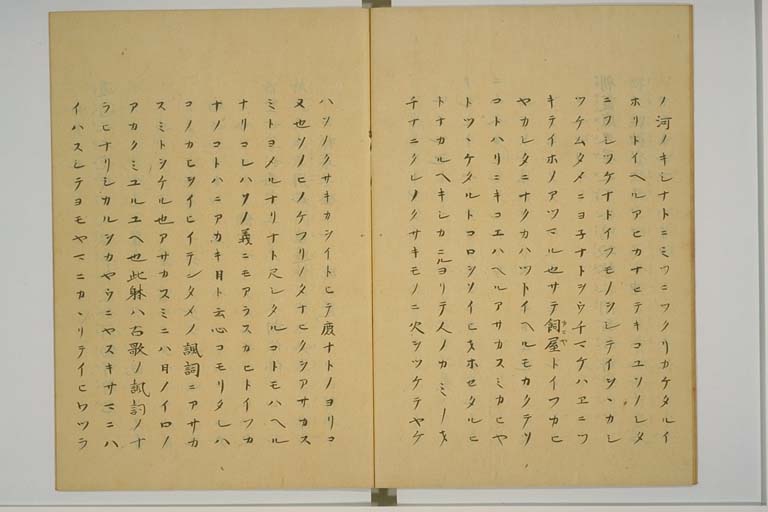 ノ河ノキシナトニミツニツクリカケタルイ
ホリトイヘルアヒカナヒテキコユソノシタ
ニフシツケナトイフモノシレテイツヽカレ
ツケムタメニヨ子ナトシウチマケハヱニツ
キテイホノアツマル也サテ飼屋トイフカヒ
ヤカシタニナクカハツトイヘルモカクテソ
コトハリニキコエハヘルアサカスミカヒヤ
トツヽケタルトコロシソイヒオホセタルヒ
トナカルヘキシカニルヨリテ人ノカミノオ
チナニクレノクサキモノニ火シツケテヤケ
ハソノクサキカシイトヒテ鹿ナトノヨリコ
ヌ也ソノヒノケフリノタナヒクシアサカス
ミトヨメルナリナト尺シタルコトモハヘル
ナリコレハソノ義ニモアラスカヒトイフカ
ナノコトハニアカキ月ト云心コモリタレハ
コノカヒシイヒイテンタメノ諷詞ニアサカ
スミトシケル也アサカスミニハ月ノイロノ
アカクミユルユヘ也此躰ハ古歌ノ諷詞ノナ
ラヒナリシカルシカヤウニヤスキサマニハ
イハスシテヨモヤマニカヽリテイヒワツラ